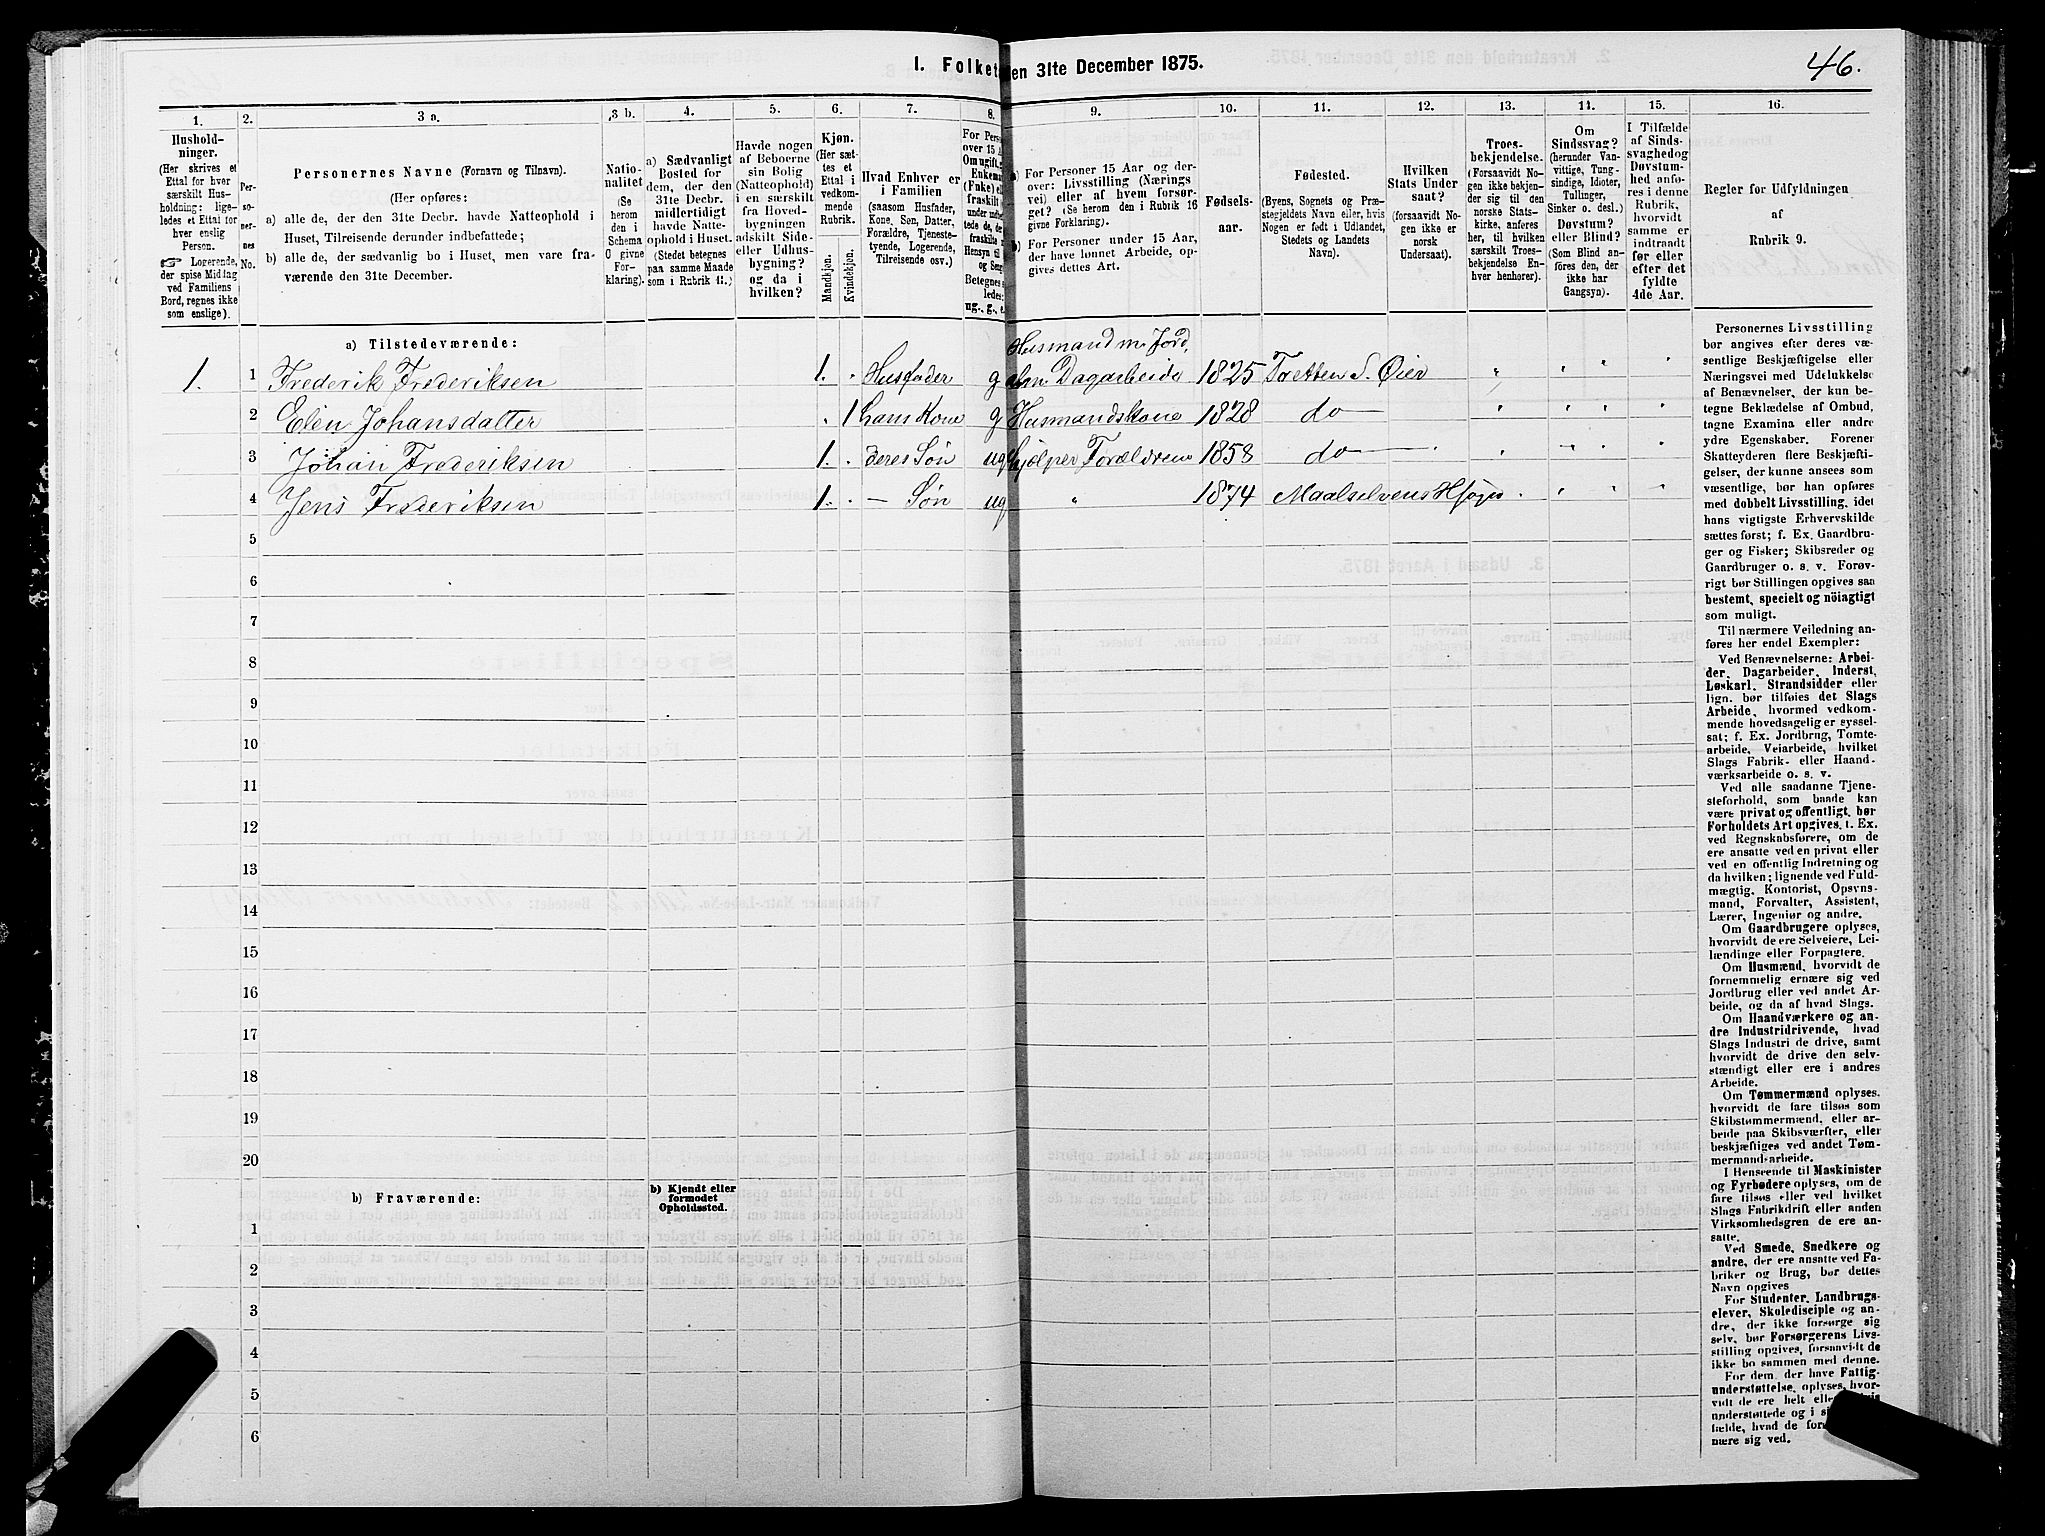 I. Folketa en 31te December 1875.
46.
1.
Hushold-
ninger.
(Her skrives et
Ettal for hver
særskilt Hus-
holdning: lige-
ledes et Ettal for
hver enslig
Person.
☞ Logerende,
der spise Middag
ved Familiens
Bord, regnes ikke
som enslige).
2.
Per-
soner-
nes
No.
3 a.
Personernes Navne (Fornavn og Tilnavn).
(Her opføres:
a) alle de, der den 31te Decbr. havde Natteophold i
Huset, Tilreisende derunder indbefattede;
b) alle de, der sædvanlig bo i Huset, men vare fra-
værende den 31te December.
3 b.
Natio-
nalitet
(Se
herom
den i
Schema
O givne
For-
klaring).
4.
a) Sædvanligt
Bosted for
dem, der den
31te Decbr.
midlertidigt
havde Natte-
ophold i Huset.
(Stedet betegnes
paa samme Maade
som i Rubrik 11.)
5.
Havde nogen
af Beboerne
sin Bolig
(Natteophold)
i en særskilt
fra Hoved-
bygningen
adskilt Side-
eller Udhus-
bygning?
og da i
hvilken?
6.
Kjøn.
(Her sæt-
tes et
Ettal i
vedkom-
mende
Rubrik.
Mandkjøn.
Kvindekjøn.
7.
Hvad Enhver er
i Familien
(saasom Husfader,
Kone, Søn, Datter,
Forældre, Tjeneste-
tyende, Logerende,
Tilreisende osv.)
8.
For Pers
over 15 A
Om ugift,
Enkema
(Fnke) el
fraskilt
9.
a) For Personer 15 Aar og der-
over: Livsstilling (Nærings
vei) eller af hvem forsør-
get? (Se herom den i Rubrik 16
givne Forklaring).
b) For Personer under 15 Aar,
der have lønnet Arbeide, op-
gives dettes Art.
10.
Fødsels-
aar.
11.
Fødested.
(Byens, Sognets og Præ-
stegjeldets Navn eller, hvis
Nogen er født i Udlandet,
Stedets og Landets
Navn).
12.
Hvilken
Stats Under
saat?
(forsaavidt No-
gen ikke er
norsk
Undersaat).
13.
Troes-
bekjendelse.
(Forsaavidt No-
gen ikke bekjen-
der sig til den
norske Stats-
kirke, anføres
her, til hvilken
særskilt Troes-
bekjendelse En-
hver henhører).
14.
Om
Sindssvag?
(herunder Van-
vittige, Tung-
sindige, Idioter,
Tullinger,
Sinker o. desl.)
Døvstum?
eller Blind?
(Som Blind an-
føres den, der
ikke har
Gangsyn).
15.
I Tilfælde
af Sinds-
svaghed og
Døvstum-
hed anfø-
res i denne
Rubrik,
hvorvidt
samme er
indtraadt
før eller
efter det
fyldte
4de Aar.
16.
Regler for Udfyldningen
af
Rubrik 9.
a) Tilstedeværende:
Husmand m. Jord,
1. 1 Frederik Frederiksen 1. Husfader g alm. Dagarbeide 1825 Tretten S. Øier
2 Elen Johansdatter 1 hans Kone g Husmandskone 1828 do
3 Johan Frederiksen 1. deres Søn ug hjelper Forældrene 1858 do
4 Jens Frederiksen 1. — Søn ug " 1874 Maalselvens Hsogn
5
6
7
8
9
10
11
12
13
14
15
16
17
18
19
20
b) Fraværende:
b) Kjendt eller
formodet
Opholdssted.
1
2
3
4
5
6
Personernes Livsstilling
bør angives efter deres væ-
sentlige Beskjæftigelse eller
Næringsvei med Udelukkelse
af Benævnelser, der kun be-
tegne Beklædelse af Ombud,
tagne Examina eller andre
ydre Egenskaber. Forener
Skatteyderen flere Beskjæfti-
gelser, der kunne ansees som
væsentlige, bør han opføres
med dobbelt Livsstilling, idet
hans vigtigste Erhvervskilde
sættes først; f. Ex. Gaardbru-
ger og Fisker; Skibsreder og
Gaardbruger o. s. v. Forøv-
rigt bør Stillingen opgives saa
bestemt, specielt og nöiagtigt
som muligt.
Til nærmere Veiledning an-
føres her endel Exempler:
Ved Benævnelserne: Arbei-
der, Dagarbeider, Inderst,
Løskarl, Strandsidder eller
lign. bør tilføies det Slags
Arbeide, hvormed vedkom-
mende hovedsagelig er syssel-
sat; f. Ex. Jordbrug, Tomte-
arbeide, Veiarbeide, hvilket
Slags Fabrik- eller Haand-
værksarbeide o. s. v.
Ved alle saadanne Tjene-
steforhold, som baade kan
være privat og offentligt, bør
Forholdets Art opgives, t. Ex.
ved Regnskabsførere, om de
ere ansatte ved en privat eller
ved en offentlig Indretning og
da hvilken; lignende ved Fuld-
mægtig, Kontorist, Opsyns-
mand, Forvalter, Assistent,
Lærer, Ingeniør og andre.
Om Gaardbrugere oplyses,
hvorvidt de ere Selveiere, Lei-
lændinge eller Forpagtere.
Om Husmænd, hvorvidt de
fornemmelig ernære sig ved
Jordbrug eller ved andet Ar-
beide, og da af hvad Slags.
Om Haandværkere og an-
dre Industridrivende, hvad
Slags Industri de drive, samt
hvorvidt de drive den selv-
stændigt eller ere i andres
Arbeide.
Om Tømmermænd oplyses,
hvorvidt de fare tilsøs som
Skibstømmermænd, eller ar-
beide paa Skibsværfter, eller
beskjæftiges ved andet Tøm-
mermandsarbeide.
I Henseende til Maskinister
og Fyrbødere oplyses, om de
fare tilsøs eller ved hvilket
Slags Fabrikdrift eller anden
Virksomhedsgren de ere an-
satte.
Ved Smede, Snedkere og
andre, der ere ansatte ved Fa-
briker og Brug, bør dettes
Navn opgives
For Studenter, Landbrugs-
elever, Skoledisciple og an-
dre, der ikke forsørge sig
selv, bør Forsørgerens Livs-
stilling opgives, forsaavidt de
ikke bo sammen med denne.
For dem, der have Fattig-
understøttelse, oplyses, hvor-
vidt de ere helt elle
understøttede og i s
fælde, hvad de for
nære sig ved.